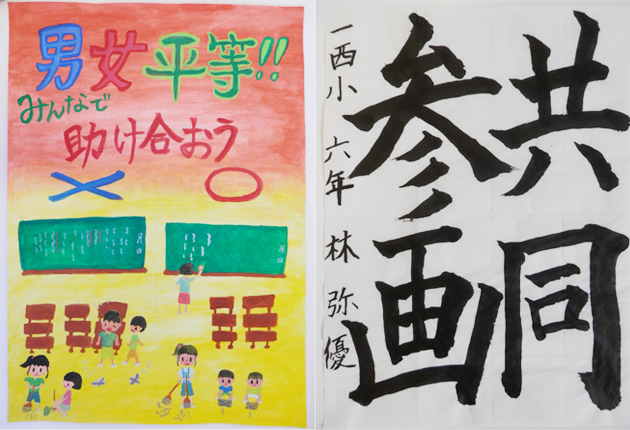 男女平等!!
みんなで
助け合おう
共同
参画
一西小 六年 林 弥優